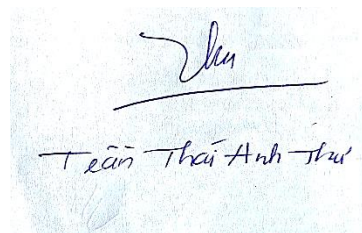 Thu
Trần Thái Anh Thư